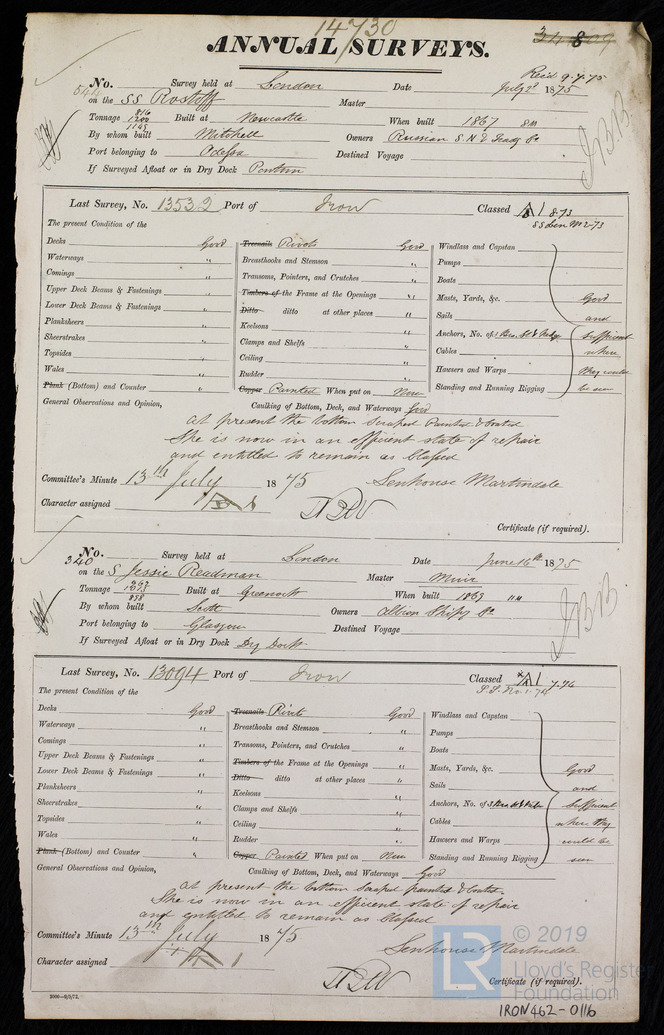 14730
ANNUAL SURVEYS.
Recd 9.7.75
No. 544 Survey held at London Date July 2d 1875
on the SS Rostoff Master
Tonnage 816 1200 1145 Built at Newcastle When built 1867 8m
By whom built Mitchell Owners Russian S.N. & Tradg Co
Port belonging to Odessa Destined Voyage
If Surveyed Afloat or in Dry Dock Pontoon
Last Survey, No. 13532 Port of Iron Classed A1 8.73
SS Lon No 2-73
The present Condition of the
Decks Good Treenails Rivets Good Windlass and Capstan
Waterways " Breasthooks and Stemson " Pumps
Comings " Transoms, Pointers, and Crutches " Boats
Upper Deck Beams & Fastenings " Timbers of the Frame at the Openings " Masts, Yards, &c. Good
Lower Deck Beams & Fastenings " Ditto ditto at other places " Sails and
Planksheers " Keelsons " Anchors, No. of Sufficient
Sheerstrakes " Clamps and Shelfs " Cables where
Topsides " Ceiling " Hawsers and Warps they could
Wales " Rudder " Standing and Running Rigging be seen
Plank (Bottom) and Counter " Copper Painted When put on New
General Observations and Opinion, Caulking of Bottom, Deck, and Waterways Good
at present the bottom scraped painted & coated
She is now in an efficient state of repair
and entitled to remain as Classed
Committee's Minute 13th July 1875 Senhouse Martindale
Character assigned A 1
Certificate (if required).
No. 340 Survey held at London Date June 16th 1875
on the S Jessie Readman Master Muir
Tonnage 962 1075 898 Built at Greenock When built 1869 11m
By whom built Scott Owners Albion Shipg Co
Port belonging to Glasgow Destined Voyage
If Surveyed Afloat or in Dry Dock Dry Dock
Last Survey, No. 13094 Port of Iron Classed A1 7.74
S.S. No. 1-74
The present Condition of the
Decks Good Treenails Rivets Good Windlass and Capstan
Waterways " Breasthooks and Stemson " Pumps
Comings " Transoms, Pointers, and Crutches " Boats
Upper Deck Beams & Fastenings " Timbers of the Frame at the Openings " Masts, Yards, &c. Good
Lower Deck Beams & Fastenings " Ditto ditto at other places " Sails and
Planksheers " Keelsons " Anchors, No. of Sufficient
Sheerstrakes " Clamps and Shelfs " Cables where they
Topsides " Ceiling " Hawsers and Warps could be
Wales " Rudder " Standing and Running Rigging seen
Plank (Bottom) and Counter " Copper Painted When put on New
General Observations and Opinion, Caulking of Bottom, Deck, and Waterways Good
at present the bottom scraped painted & coated.
She is now in an efficient state of repair
and entitled to remain as Classed
Committee's Minute 13th July 1875 Senhouse Martindale
Character assigned A 1
Certificate (if required).
© 2019
LR Lloyd's Register
Foundation
IRON462-0116